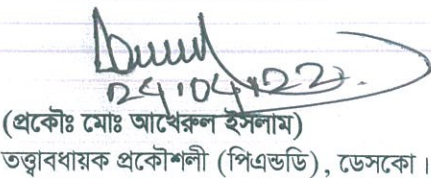 24.04.22
(প্রকৌঃ মোঃ আখেরুল ইসলাম)
তত্ত্বাবধায়ক প্রকৌশলী (পিএন্ডডি), ডেসকো।